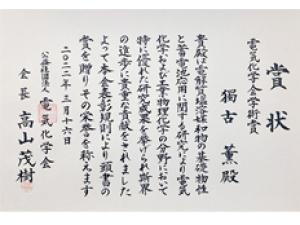 賞状
電気化学会学術賞
獨古 薫 殿
貴殿は電解質濃厚溶媒和物の基礎物性
と蓄電池応用に関する研究により電気
化学および工業物理化学の分野において
特に優れた研究成果を挙げられ斯界
の進歩に貴重な貢献をされました
よって本会表彰規則により頭書の
賞を贈りその栄誉を称えます
二〇二二年三月十六日
公益社団法人 電気化学会
会長 高山茂樹